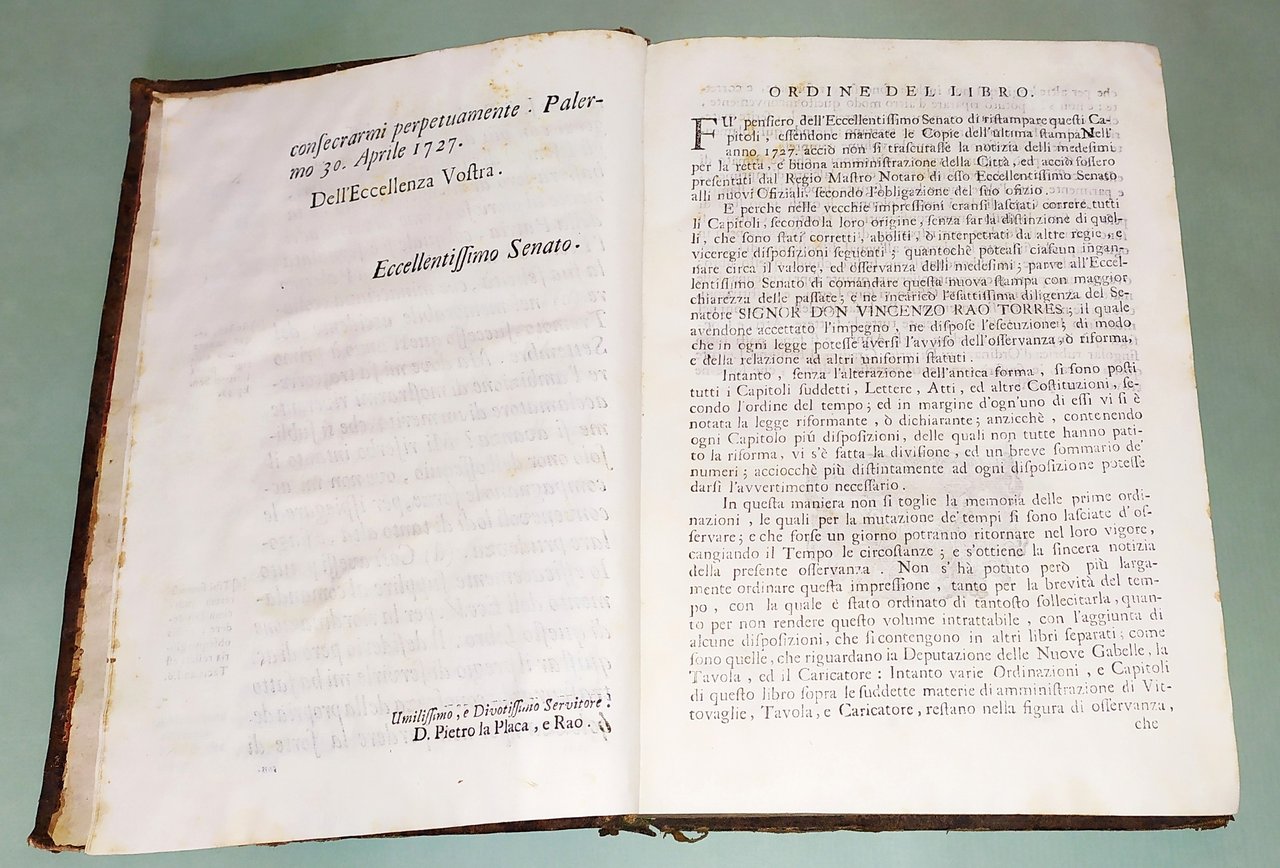 conſecrarmi perpetuamente : Paler-
mo 30. Aprile 1727.
Dell'Eccellenza Voſtra.
Eccellentiſſimo Senato.
Umiliſſimo, e Divotiſſimo Servitore
D. Pietro la Placa, e Rao.
ORDINE DEL LIBRO.
FU' penſiero dell'Eccellentiſſimo Senato di riſtampare queſti Ca-
pitoli, eſſendone mancate le Copie dell'ultima ſtampa Nell'
anno 1727. acciò non ſi traſcuraſſe la notizia delli medeſimi
per la retta, e buona amminiſtrazione della Città, ed acciò foſſero
preſentati dal Regio Maſtro Notaro di eſſo Eccellentiſſimo Senato
alli nuovi Ofiziali, ſecondo l'obligazione del ſuo ofizio.
E perche nelle vecchie impreſſioni eranſi laſciati correre tutti
li Capitoli, ſecondo la loro origine, ſenza far la diſtinzione di quel-
li, che ſono ſtati corretti, aboliti, ò interpetrati da altre regie, e
viceregie diſpoſizioni ſeguenti; quantochè poteaſi ciaſcun ingan-
nare circa il valore, ed oſſervanza delli medeſimi; parve all'Eccel-
lentiſſimo Senato di comandare queſta nuova ſtampa con maggior
chiarezza delle paſſate; e ne incaricò l'eſattiſſima diligenza del Se-
natore SIGNOR DON VINCENZO RAO TORRES; il quale
avendone accettato l'impegno, ne diſpoſe l'eſecuzione; di modo,
che in ogni legge poteſſe averſi l'avviſo dell'oſſervanza, ò riforma,
e della relazione ad altri uniformi ſtatuti.
Intanto, ſenza l'alterazione dell'antica forma, ſi ſono poſti
tutti i Capitoli ſuddetti, Lettere, Atti, ed altre Coſtituzioni, ſe-
condo l'ordine del tempo; ed in margine d'ogn'uno di eſſi vi ſi è
notata la legge riformante, ò dichiarante; anzicchè, contenendo
ogni Capitolo più diſpoſizioni, delle quali non tutte hanno pati-
to la riforma, vi s'è fatta la diviſione, ed un breve ſommario de'
numeri; acciocchè più diſtintamente ad ogni diſpoſizione poteſſe
darſi l'avvertimento neceſſario.
In queſta maniera non ſi toglie la memoria delle prime ordi-
nazioni, le quali per la mutazione de' tempi ſi ſono laſciate d'oſ-
ſervare; e che forſe un giorno potranno ritornare nel loro vigore,
cangiando il Tempo le circoſtanze; e s'ottiene la ſincera notizia
della preſente oſſervanza. Non s'hà potuto però più larga-
mente ordinare queſta impreſſione, tanto per la brevità del tem-
po, con la quale è ſtato ordinato di tantoſto ſollecitarla, quan-
to per non rendere queſto volume intrattabile, con l'aggiunta di
alcune diſpoſizioni, che ſi contengono in altri libri ſeparati; come
ſono quelle, che riguardano la Deputazione delle Nuove Gabelle, la
Tavola, ed il Caricatore: Intanto varie Ordinazioni, e Capitoli
di queſto libro ſopra le ſuddette materie di amminiſtrazione di Vit-
tovaglie, Tavola, e Caricatore, reſtano nella figura di oſſervanza,
che